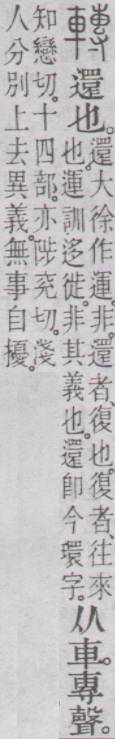 轉還也。還大徐作運。非。還者、復也。復者、往來
也。運訓迻徙。非其義也。還卽今環字。从車。專聲。
知戀切。十四部。亦陟兖切。淺
人分別上去異義。無事自擾。